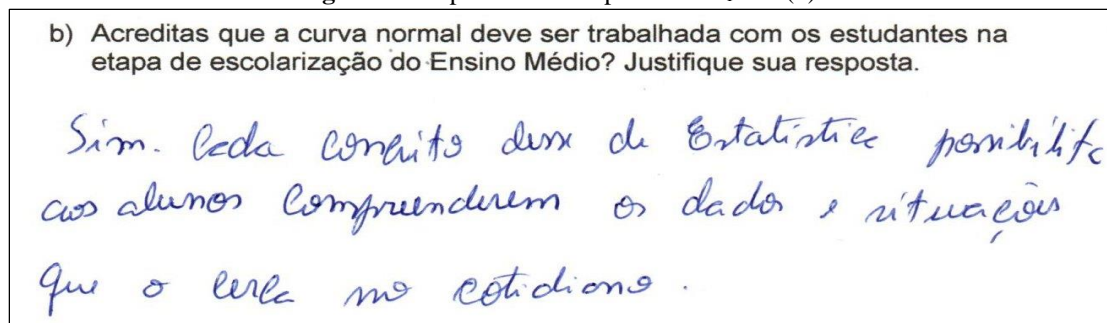 b) Acreditas que a curva normal deve ser trabalhada com os estudantes na
etapa de escolarização do Ensino Médio? Justifique sua resposta.
Sim. Cada conceito desse de Estatística possibilita
aos alunos compreenderem os dados e situações
que o cerca no cotidiano.